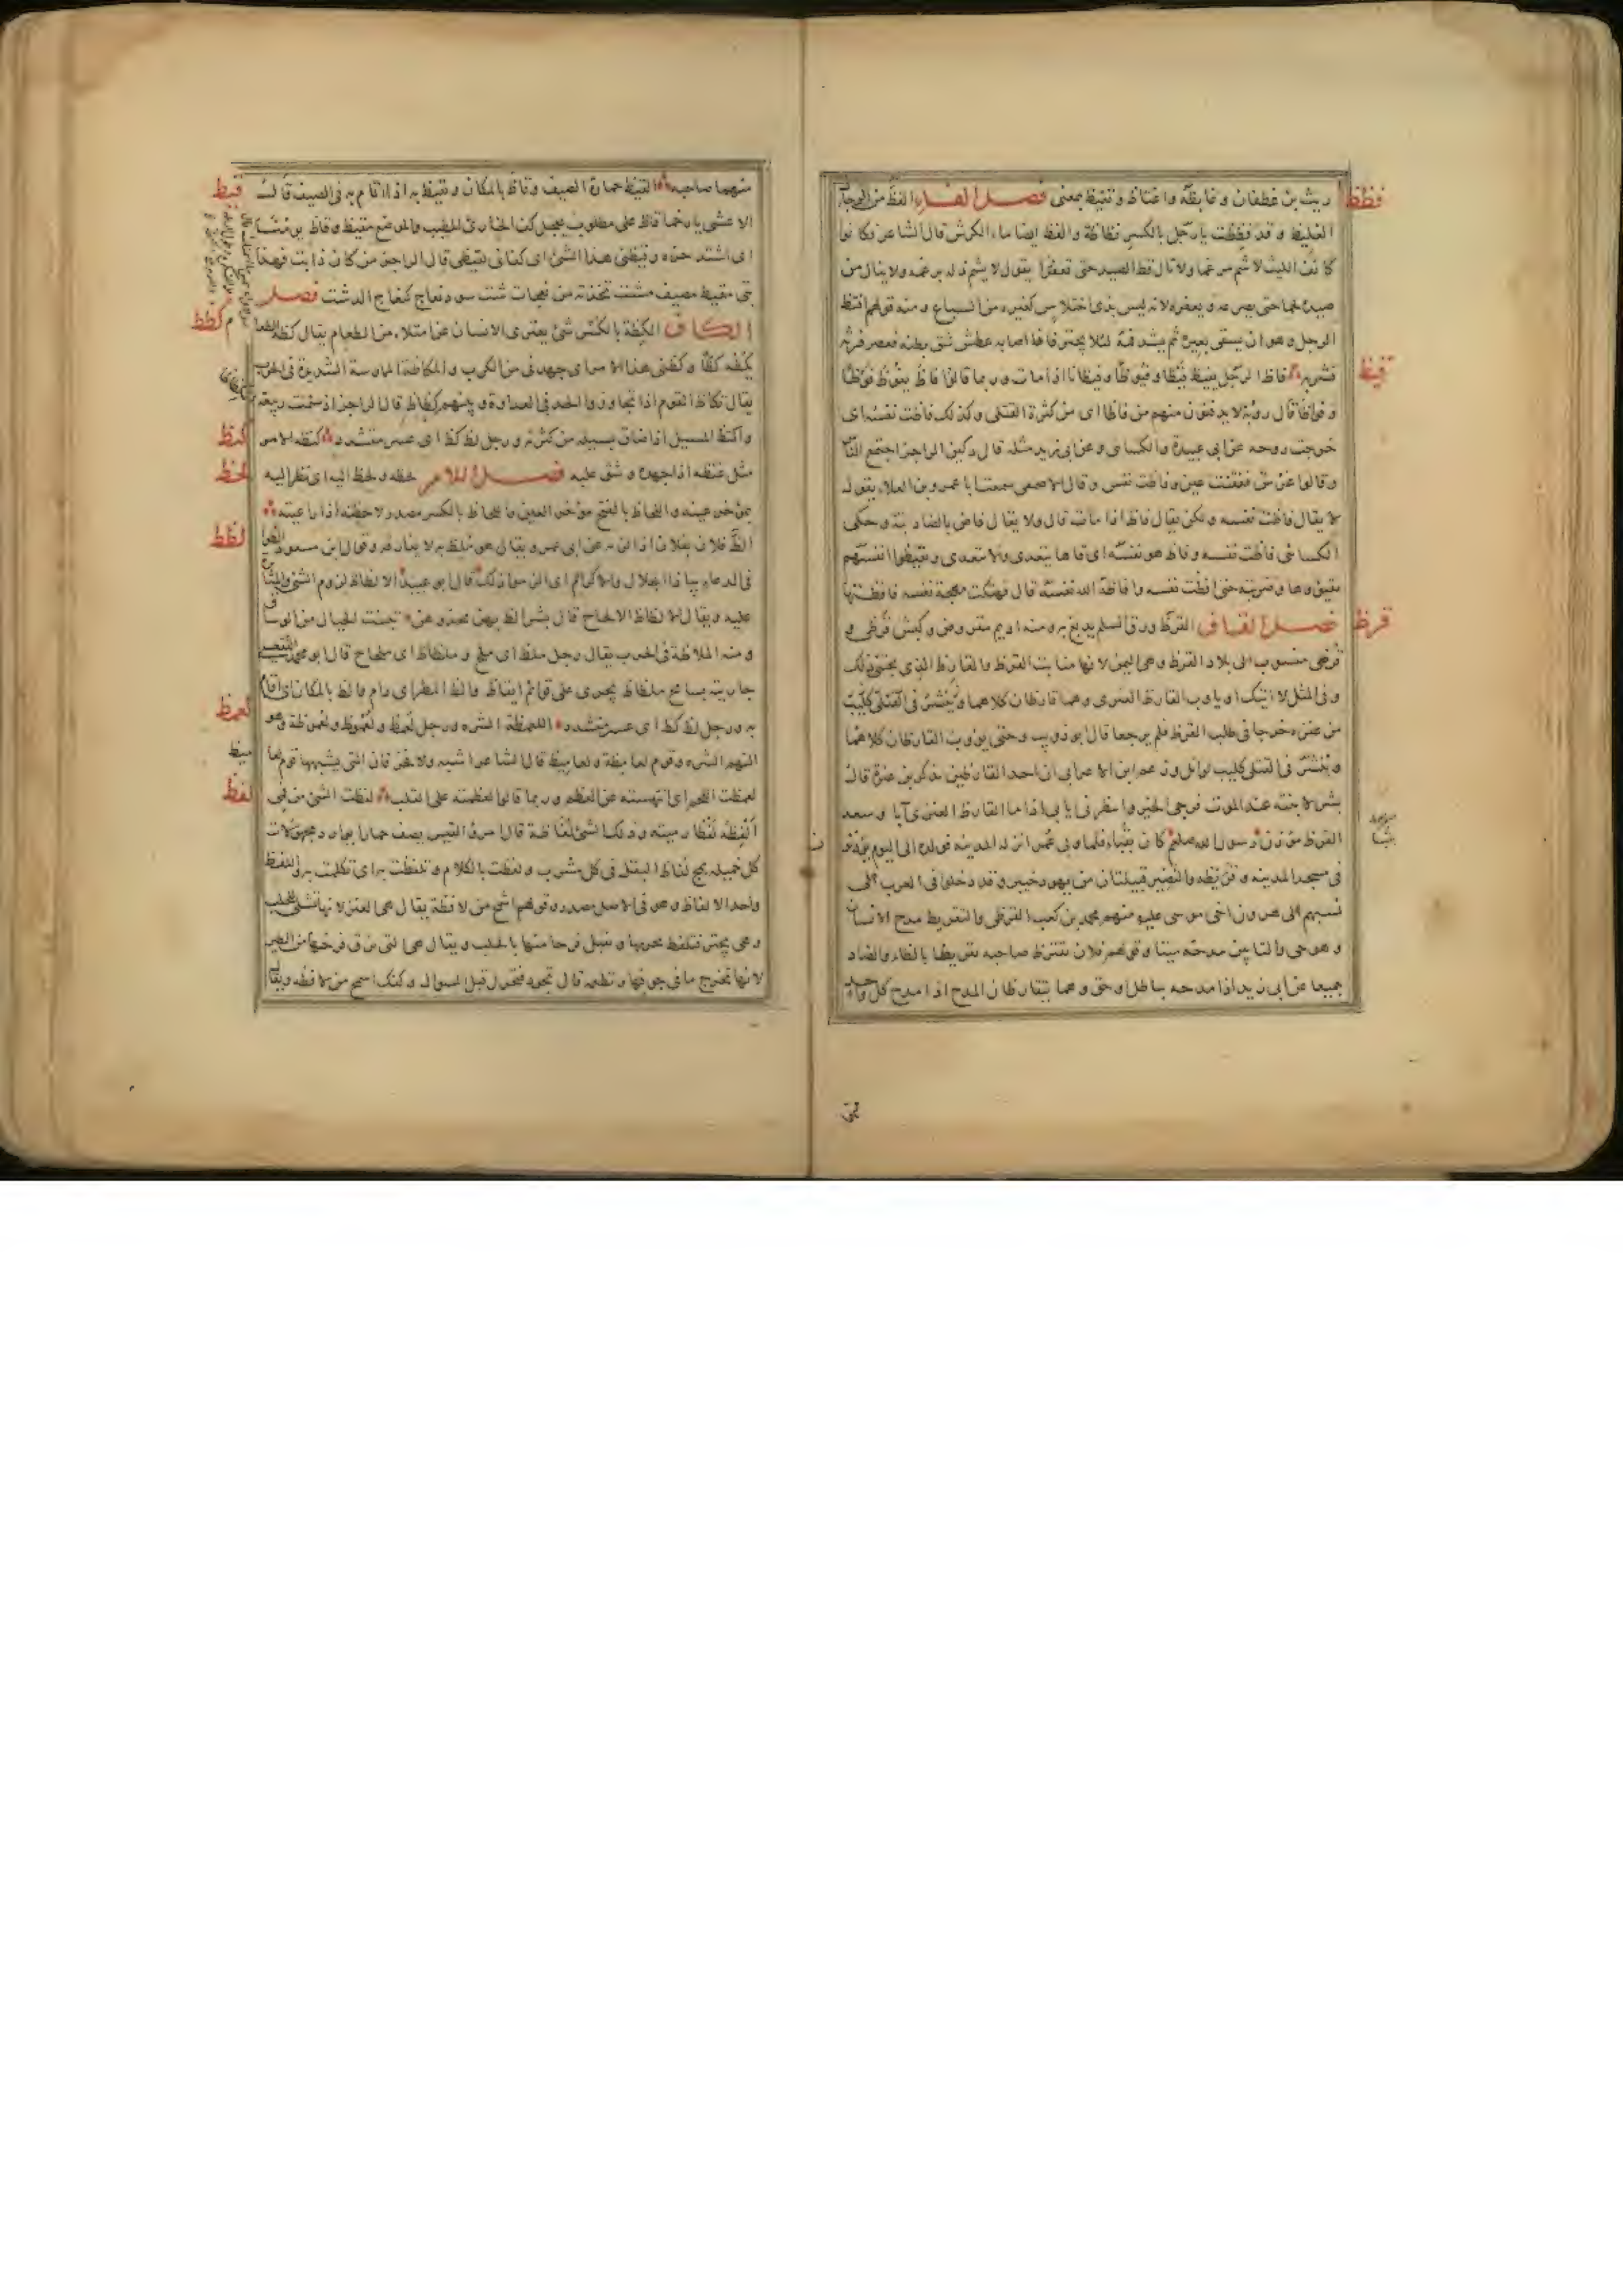 ريث بن غطفان و غايظه واغتاظ وتغيظ بمعنى فصل الفاء الفظ من الرجال
فظظ
الغليظ وقد فظظت يا رجل بالكسر فظاظة والفظ ايضا ماء الكرش قال الشاعر وكانوا
كانف الليث لا شم مرغما ولا نال فظ الصيد حتى تعفرا يقول لا يشم ذلة برغمه ولا ينال من
صيده لحما حتى يصرعه ويعفره لانه ليس بذى اختلاس كغيره من السباع ومنه قولهم افتظ
الرجل وهو ان يسقى بعيره ثم يشد فمه لئلا يجتر فاذا اصابه عطش شق بطنه فعصر فرثه
فشربه فاظ الرجل يفيظ فيظا وفيوظا وفيظانا اذا مات وربما قالوا فاظ يفوظ فوظا
فيظ
وفواظا قال رؤبة لا يدفنون منهم من فاظا اى من كثرة القتلى وكذلك فاظت نفسه اى
خرجت روحه عن ابى عبيدة والكسائى وعن ابى زيد مثله قال دكين الراجز اجتمع الناس
وقالوا عرس ففقئت عين وفاظت نفس وقال الاصمعى سمعت ابا عمرو بن العلاء يقول
لا يقال فاظت نفسه ولكن يقال فاظ اذا مات قال ولا يقال فاض بالضاد بتة وحكى
الكسائى فاظت نفسه وفاظ هو نفسه اى قاءها يتعدى ولا يتعدى وتفيظوا انفسهم
تقيؤوها وضربته حتى افظت نفسه وافاظه الله نفسه قال فهتكت مهجة نفسه فافظتها
فصل القاف القرظ ورق السلم يدبغ به ومنه اديم مقروض وكبش قرظى و
قرظ
قرضى منسوب الى بلاد القرظ وهى اليمن لانها منابت القرظ والقارظ الذى يجتنى ذلك
وفى المثل لا آتيك او يؤوب القارظ العنزى وهما قارظان كلاهما وينشر فى القتلى كليب
من عنزه خرجا فى طلب القرظ فلم يرجعا قال ابو ذويب وحتى يؤوب القارظان كلاهما
وينشر فى القتلى كليب لوائل وزعم ابن الاعرابى ان احد القارظين يذكر بن عنزة قال
بشر لابنته عند الموت فرجى الخير وانتظرى ايابى اذا ما القارظ العنزى آبا وسعد
القرظ مؤذن رسول الله صلعم كان بقباء فلما ولى عمر انزله المدينه فولده الى اليوم يؤذنون
فى مسجد المدينه وقريظه والنضير قبيلتان من يهود خيبر وقد دخلوا فى العرب على
نسبهم الى هرون اخى موسى عليه منهم محمد بن كعب القرظى والتقريظ مدح الانسان
وهو حى والتابين مدحه ميتا وقولهم فلان يقرظ صاحبه تقريظا بالظاء والضاد
جميعا عن ابى زيد اذا مدحه بباطل او حق وهما يتقارظان المدح اذا مدح كل واحد
منهما صاحبه القيظ حمارة الصيف وقاظ بالمكان وتقيظ به اذا اقام به فى الصيف قال
قيظ
الاعشى يا رخما قاظ على مطلوب يعجل كف الخارئ المطيب والموضع مقيظ وقاظ يومنا
اى اشتد حره وقيظنى هذا الشئ اى كفانى لقيظى قال الراجز من كان ذا بت فهذا
بتى مقيظ مصيف مشتى تخذته من نعجات ست سود نعاج كنعاج الدشت فصل
الكاف الكظة بالكسر شئ يعترى الانسان عن امتلاء من الطعام يقال كظه الطعام
كظظ
يكظه كظا وكظنى هذا الامر اى جهدنى من الكرب والمكاظة الممارسة الشديدة فى الحرب
يقال تكاظ القوم اذا تجاوزوا الحد فى العداوة وبينهم كظاظ قال الراجز اذ سئمت ربيعة
واكتظ المسيل اذا ضاق بسيله من كثرته ورجل لظ كظ اى عسر متشدد كنظه الامر
كنظ
مثل غنظه اذا جهده وشق عليه فصل اللام لحظه ولحظ اليه اى نظر اليه
لحظ
بمؤخر عينه واللحاظ بالفتح مؤخر العين واللحاظ بالكسر مصدر لاحظته اذا راعيته
الظ فلان بفلان اذا لزمه عن ابى عمرو يقال هو ملظ به لا يفارقه وقول ابن مسعود الظوا
لظظ
فى الدعاء بياذا الجلال والاكرام اى الزموا ذلك قال ابو عبيد الالظاظ لزوم الشئ والمثابرة
عليه ويقال الالظاظ الالحاح قال بشر الظ بهن يحدوهن تبينت الحيال من الوساق
ومنه الملاظة فى الحرب يقال رجل ملظ اى ملح وملظاظ اى ملحاح قال ابو محمد الفقعسى
جاريته بسابح ملظاظ يجرى على قوائم ايقاظ والظ المطر اى دام والظ بالمكان اى اقام
به ورجل لظ كظ اى عسر متشدد اللعمظة الشره ورجل لعمظ ولعموظ ولعموظة وهو
لعمظ
النهم الشره وقوم لعامظة ولعاميظ قال الشاعر اشبه ولا فخر فان التى يشبهها قوم لعاميظ
لعمظت اللحم اى انتهسته عن العظم وربما قالوا لعظمته على القلب لفظت الشئ من فمى
لفظ
الفظه لفظا رميته وذلك الشئ لفاظة قال امرؤ القيس يصف حمارا يوارد مجهولات
كل خميلة يمج لفاظ البقل فى كل مشرب ولفظت بالكلام وتلفظت به اى تكلمت به واللفظ
واحد الالفاظ وهو فى الاصل مصدر وقولهم اسمح من لافظة يقال هى العنز لانها تشلى للحلب
وهى تجتر فتلفظ بجرتها وتقبل فرحا منها بالحلب ويقال هى التى تزق فرخها من الطير
لانها تخرج ما فى جوفها وتطعمه قال تجود فتجزل قبل السوال وكفك اسمح من لافظه ويقال